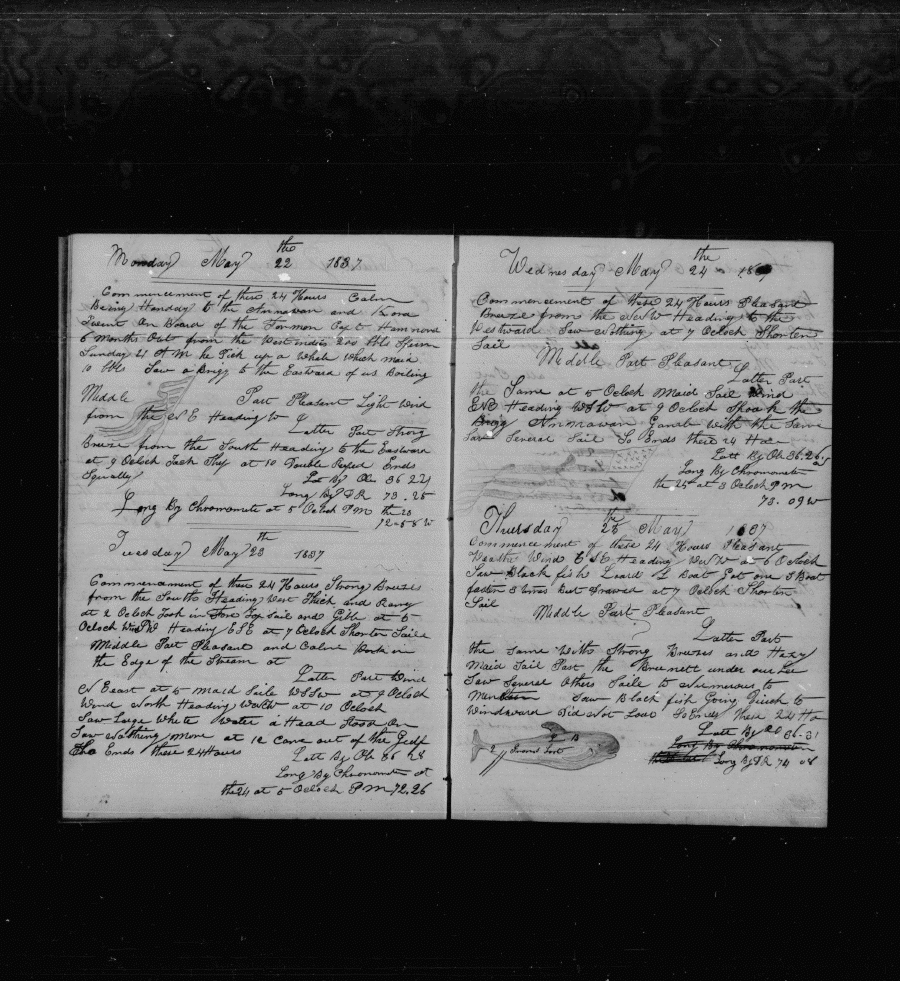 Monday May 22 the 1887
Commencement of these 24 Hours Calm
Being Handay to the Annawan and Kora
Went On Board of the Capt Hammond
6 Months Out from the West indies 200 bbls Sperm
Sunday 21 A M he Pick up a Whale Which maid
10 bbls Saw a Brigg to the Eastward of us Boiling
Middle Part Pleasant Light Wind
from the N E Heading to W
Latter Part Strong
Breeze from the South Heading to the Eastward
at 9 Oclock Tack Ship at 10 Double Reefed Ends
Squally
Lat By Ob 36 22
Long By D R 73.25
Long By Chronometer at 5 Oclock P M the 23
72-58 W
Tuesday May 23 th 1887
Commencement of these 24 Hours Strong Breezes
from the South Heading West Thick and Rany
at 2 Oclock Took in Fore Top Sail and Gibb at 5
Oclock Wind W Heading E S E at 7 Oclock Shorten Saile
Middle Part Pleasant and Calm Work in
the Edge of the Stream at
Latter Part Wind
N East at 5 maid Saile W S W at 9 Oclock
Wind North Heading at 10 Oclock
Saw Large White Water a Head Stood On
Saw Nothing More at 12 Came out of the
Ends these 24 Hours
Latt By Ob 36 28
Long By Chronometer at
the 24 at 5 Oclock P M 72.26
Wednesday May 24 the
Commencement of these 24 Hours Pleasant
Breeze from the Heading to the
Westward Saw Nothing at 7 Oclock Shorten
Sail
Middle Part Pleasant
Latter Part
the Same at 5 Oclock Maid Sail Wind
Heading WSW at 9 Oclock Spoak the
Brig Annawan Gamb With the Same
Saw Several Sail So Ends these 24 Hou
Latt By Ob 36.26
Long By Chronometer
the 25 at 3 Oclock P M
73.09 W
Thursday 25 th May
Commencement of these 24 Hours Pleasant
Weather Wind E S E Heading at 6 Oclock
Saw Black fish Loard 2 Boat Got one S Boat
3 times but at 7 Oclock Shorten
Sail
Middle Part Pleasant
Latter Part
the Same With Strong Breezes and Hazy
Maid Sail Part the under our Lee
Saw Several Others Saile to Numerous to
Saw Black fish Going Quick to
Windward Did Not Loar So Ends these 24 Ho
Latt By Ob 36-31
Long By D R 74 08